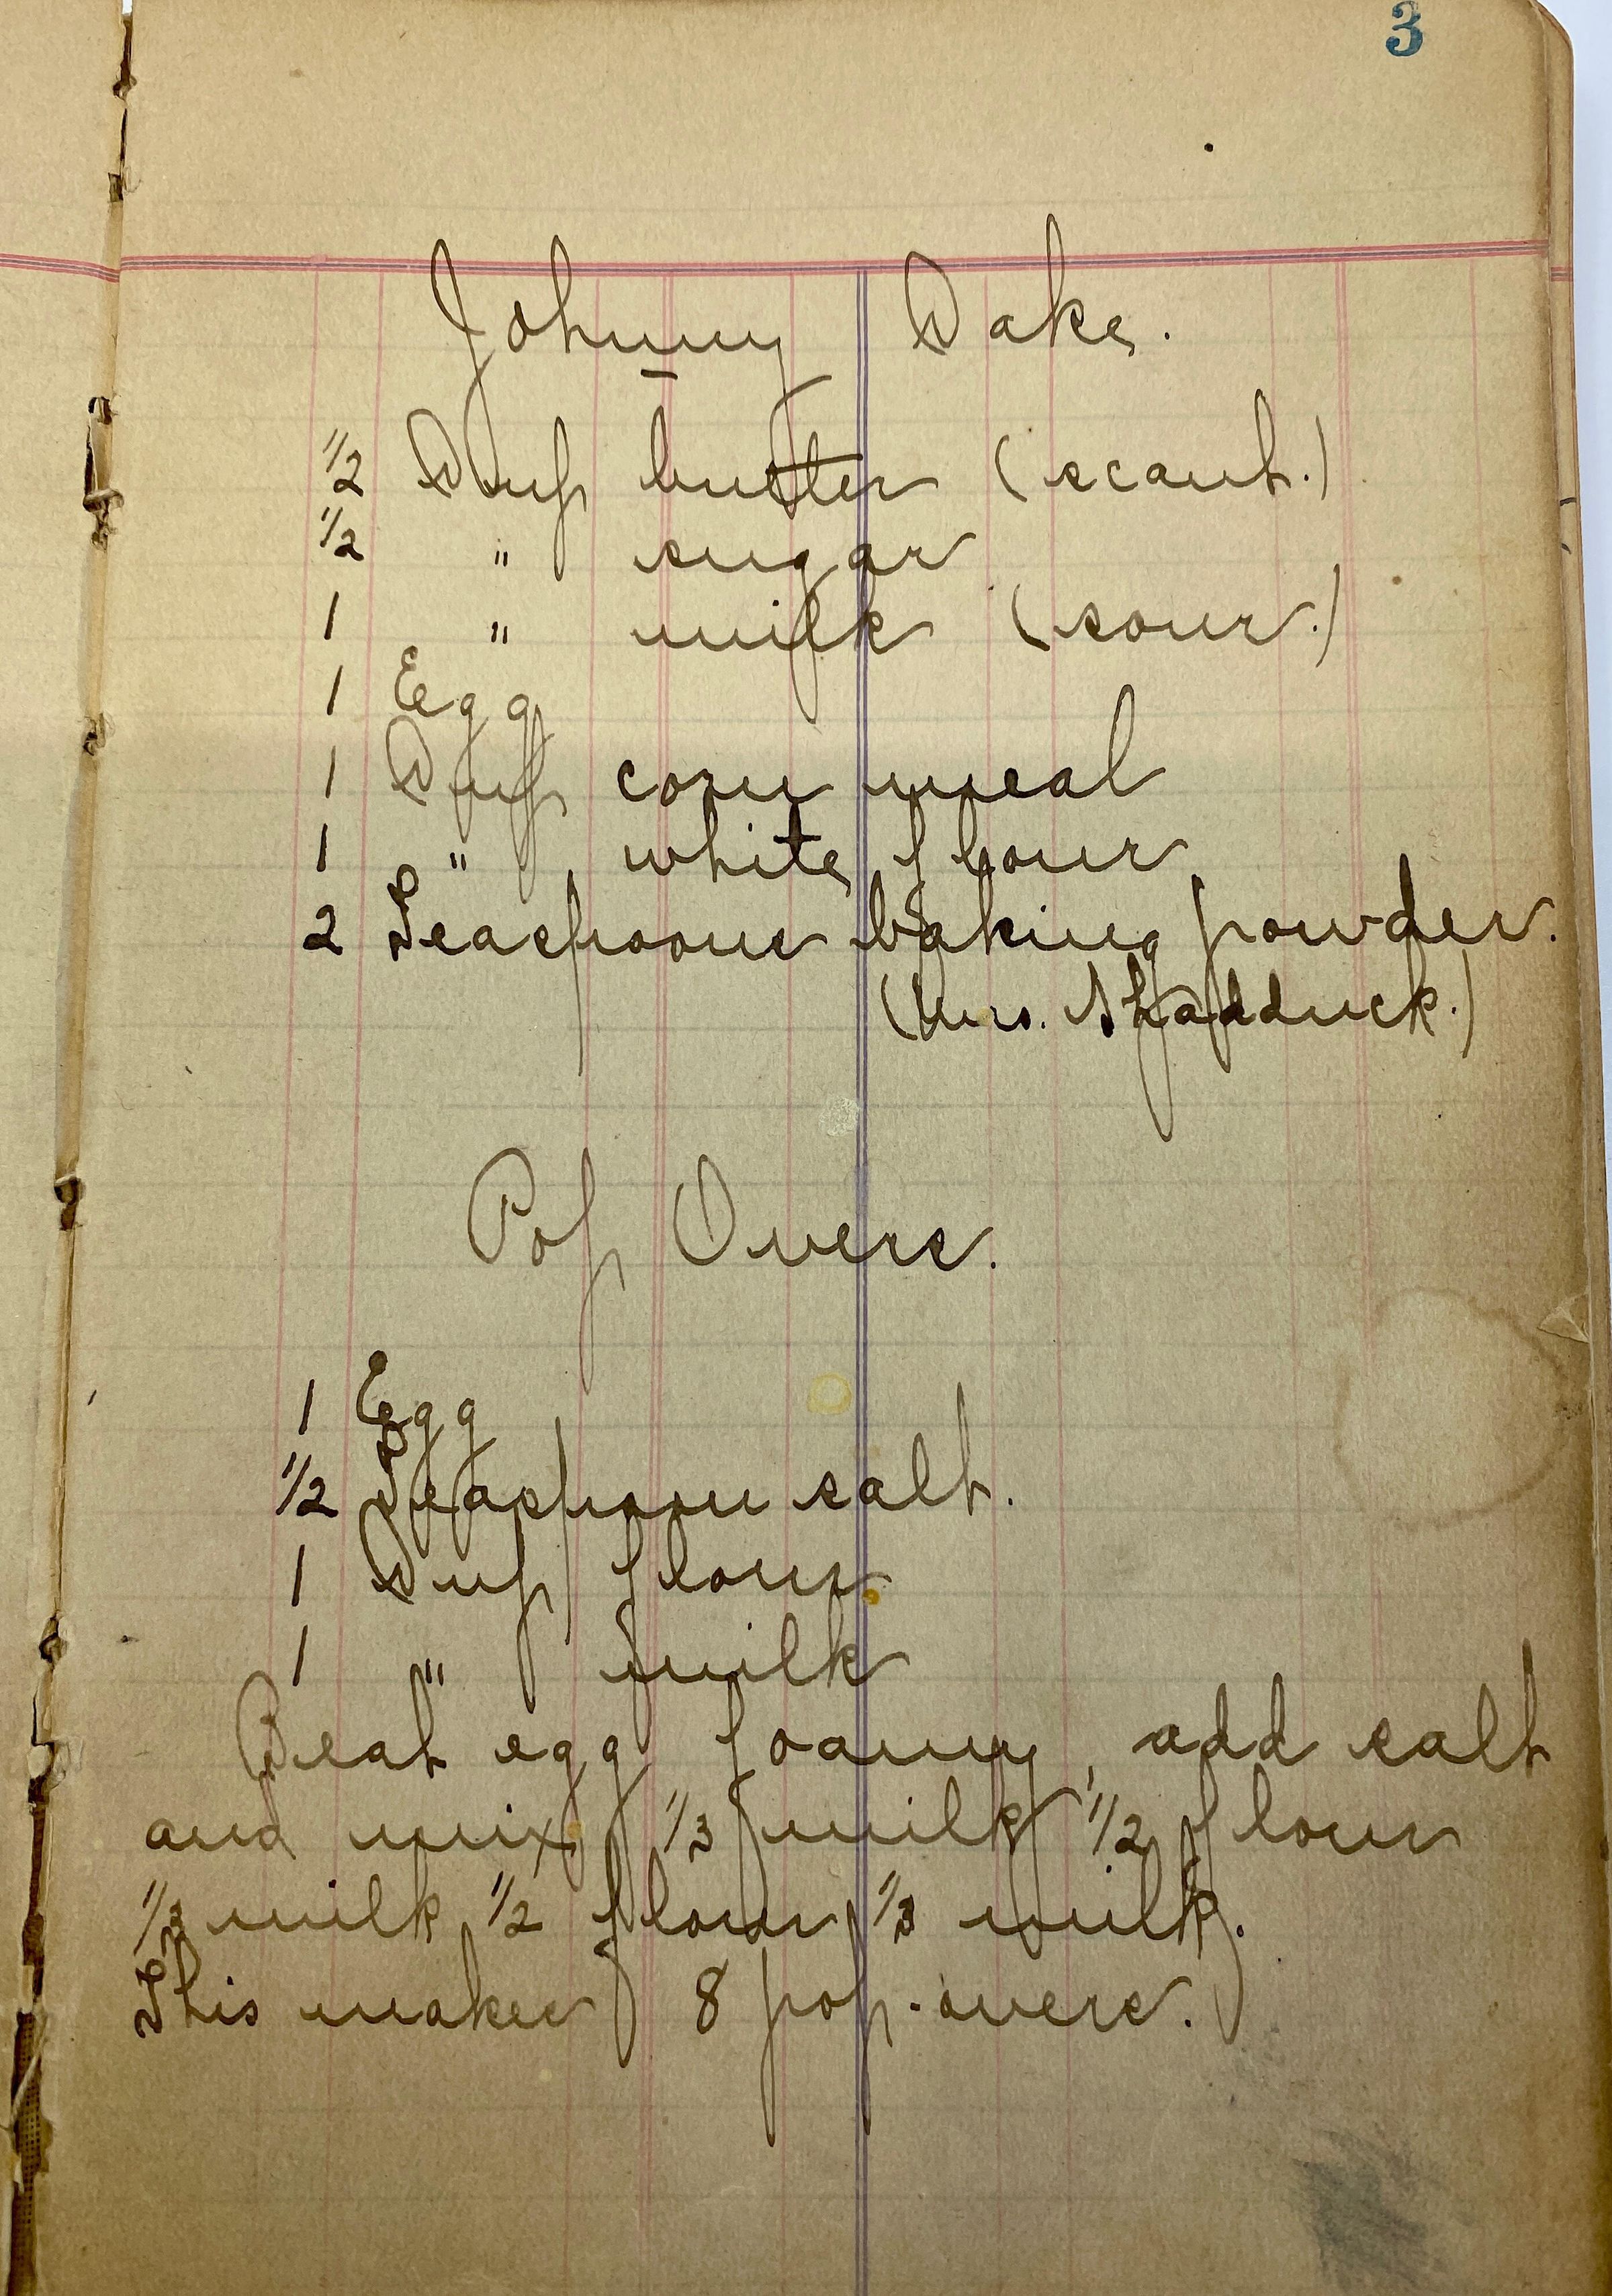 3
Johnny Cake.
1/2 Cup butter (scant.)
1/2 " sugar
1 " milk (sour.)
1 Egg
1 Cup corn meal
1 " white flour
2 Teaspoons baking powder.
(Mrs. Shadduck.)
Pop Overs.
1 Egg
1/2 Teaspoon salt.
1 Cup flour
1 " milk
Beat egg foamy, add salt
and mix 1/3 milk 1/2 flour
1/3 milk 1/2 flour 1/3 milk.
This makes 8 pop-overs.